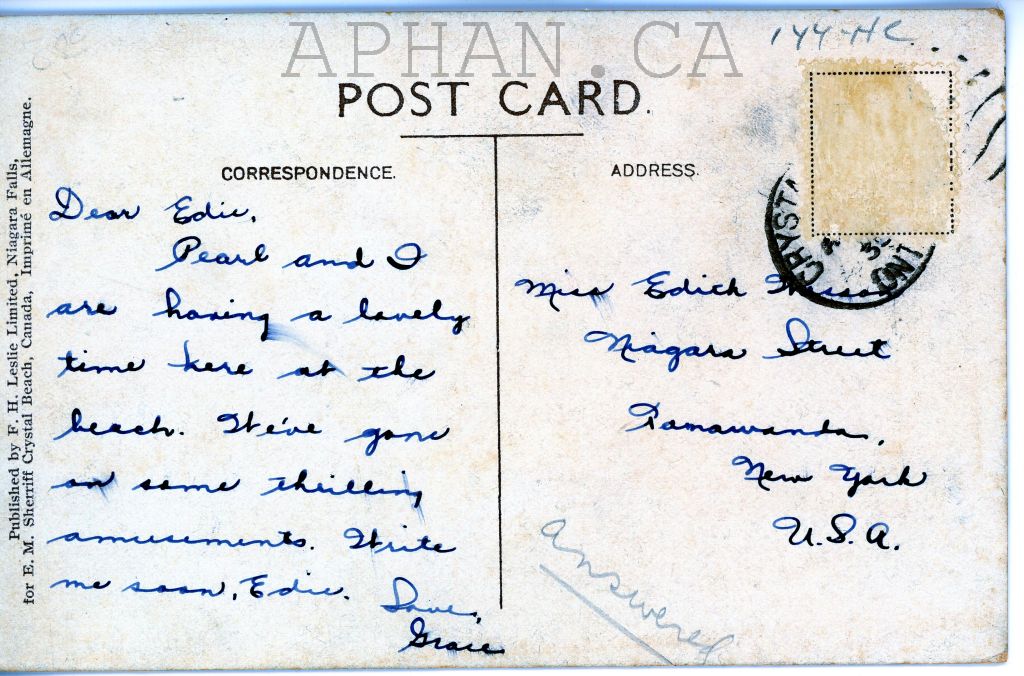 APHAN.CA
144-HC
POST CARD.
CORRESPONDENCE.
ADDRESS.
Published by F. H. Leslie Limited, Niagara Falls,
for E. M. Sherriff Crystal Beach, Canada, Imprimé en Allemagne.
Dear Edie,
Pearl and I
are having a lovely
time here at the
beach. We've gone
on some thrilling
amusements. Write
me soon, Edie.
Love,
Grace
CRYSTA
ONT
Miss Edith
Niagara Street
Tonawanda,
New York
U.S.A.
Answered